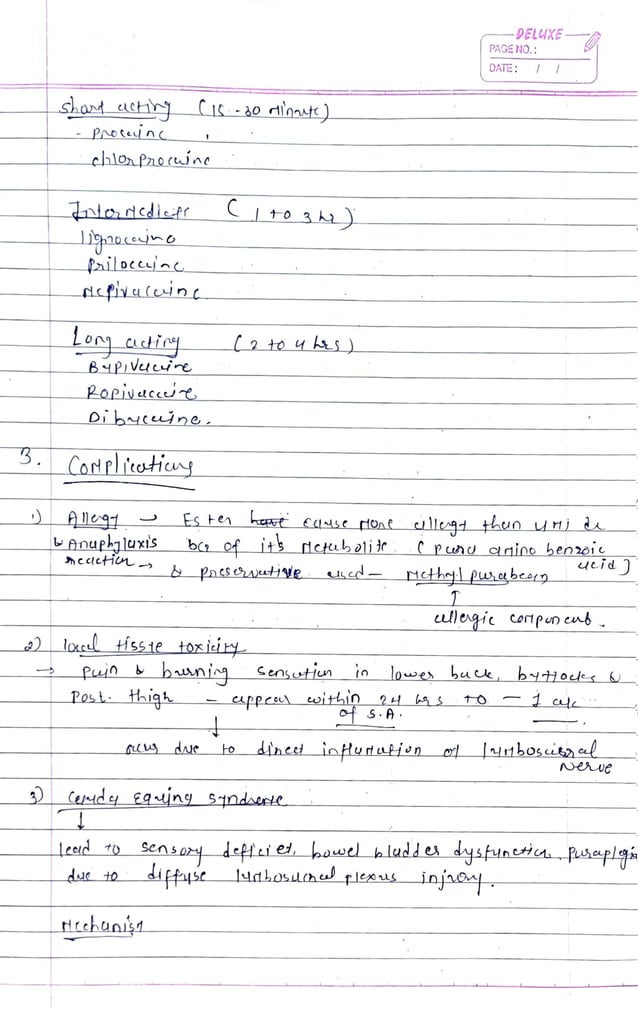 DELUXE
PAGE NO.:
DATE: / /
Short acting (15-30 Minute)
- Procaine ,
chlorprocaine
Intermediate (1 to 3 hr)
lignocaine
Prilocaine
Mepivacaine
Long acting (2 to 4 hrs)
Bupivacaine
Ropivacaine
Dibucaine.
3. Complications
1) Allergy → Ester have cause more allergy than amide
& Anaphylaxis bcz of it's Metabolite (para amino benzoic acid)
reaction → & preservative used - Methyl paraben
↑
allergic component.
2) local tissue toxicity
→ Pain & burning sensation in lower back, buttocks &
Post. thigh - appear within 24 hrs to - 1
of S.A.
↓
occurs due to direct inflamation of lumbosacral
Nerve
3) Cauda Equina Syndrome
↓
lead to sensory deficiet, bowel bladder dysfunction, Paraplegia
due to diffuse lumbosacral plexus injury.
Mechanism